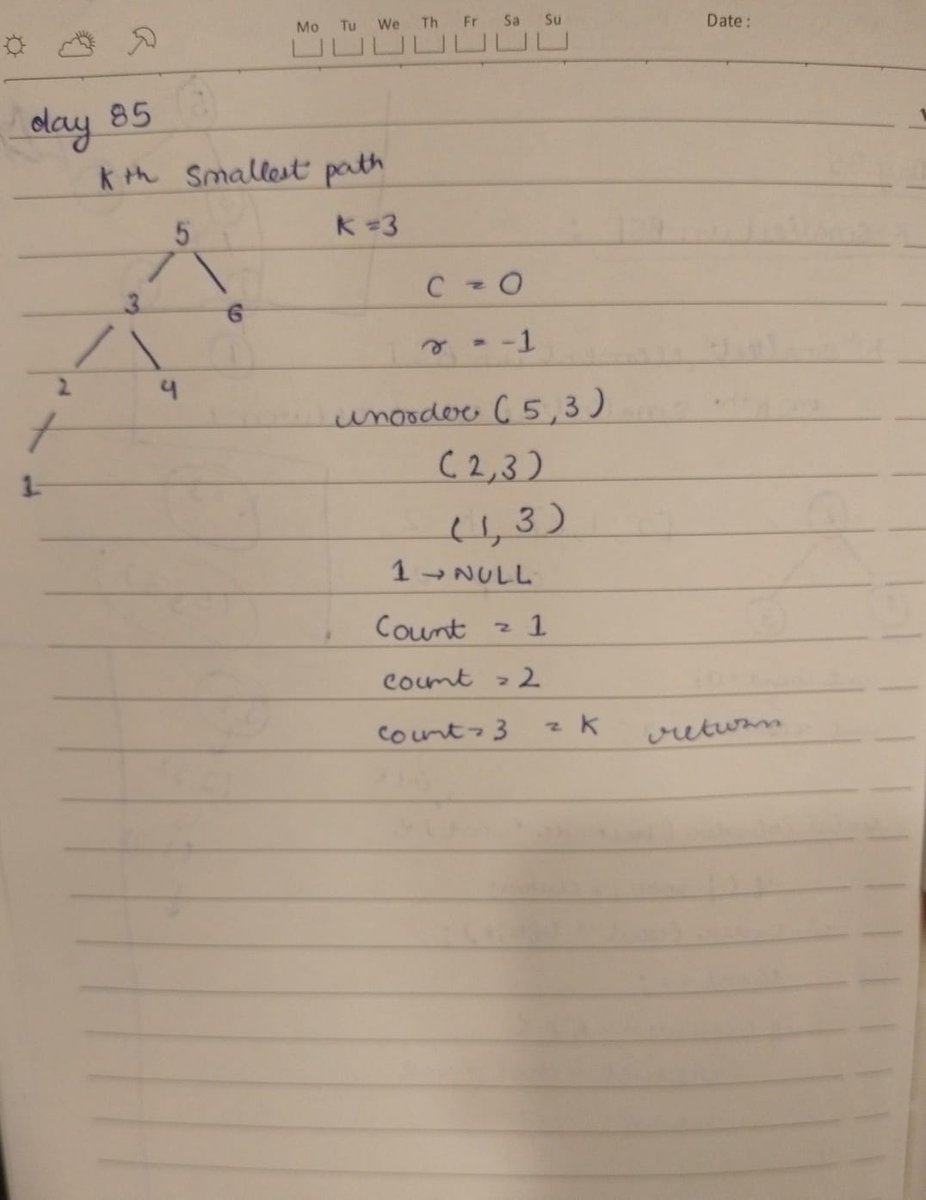 Mo Tu We Th Fr Sa Su Date :
day 85
Kth Smallest path
5 K = 3
3 6 C = 0
r = -1
2 4
inorder ( 5, 3 )
( 2, 3 )
1
( 1, 3 )
1 → NULL
Count = 1
count = 2
count = 3 = K return